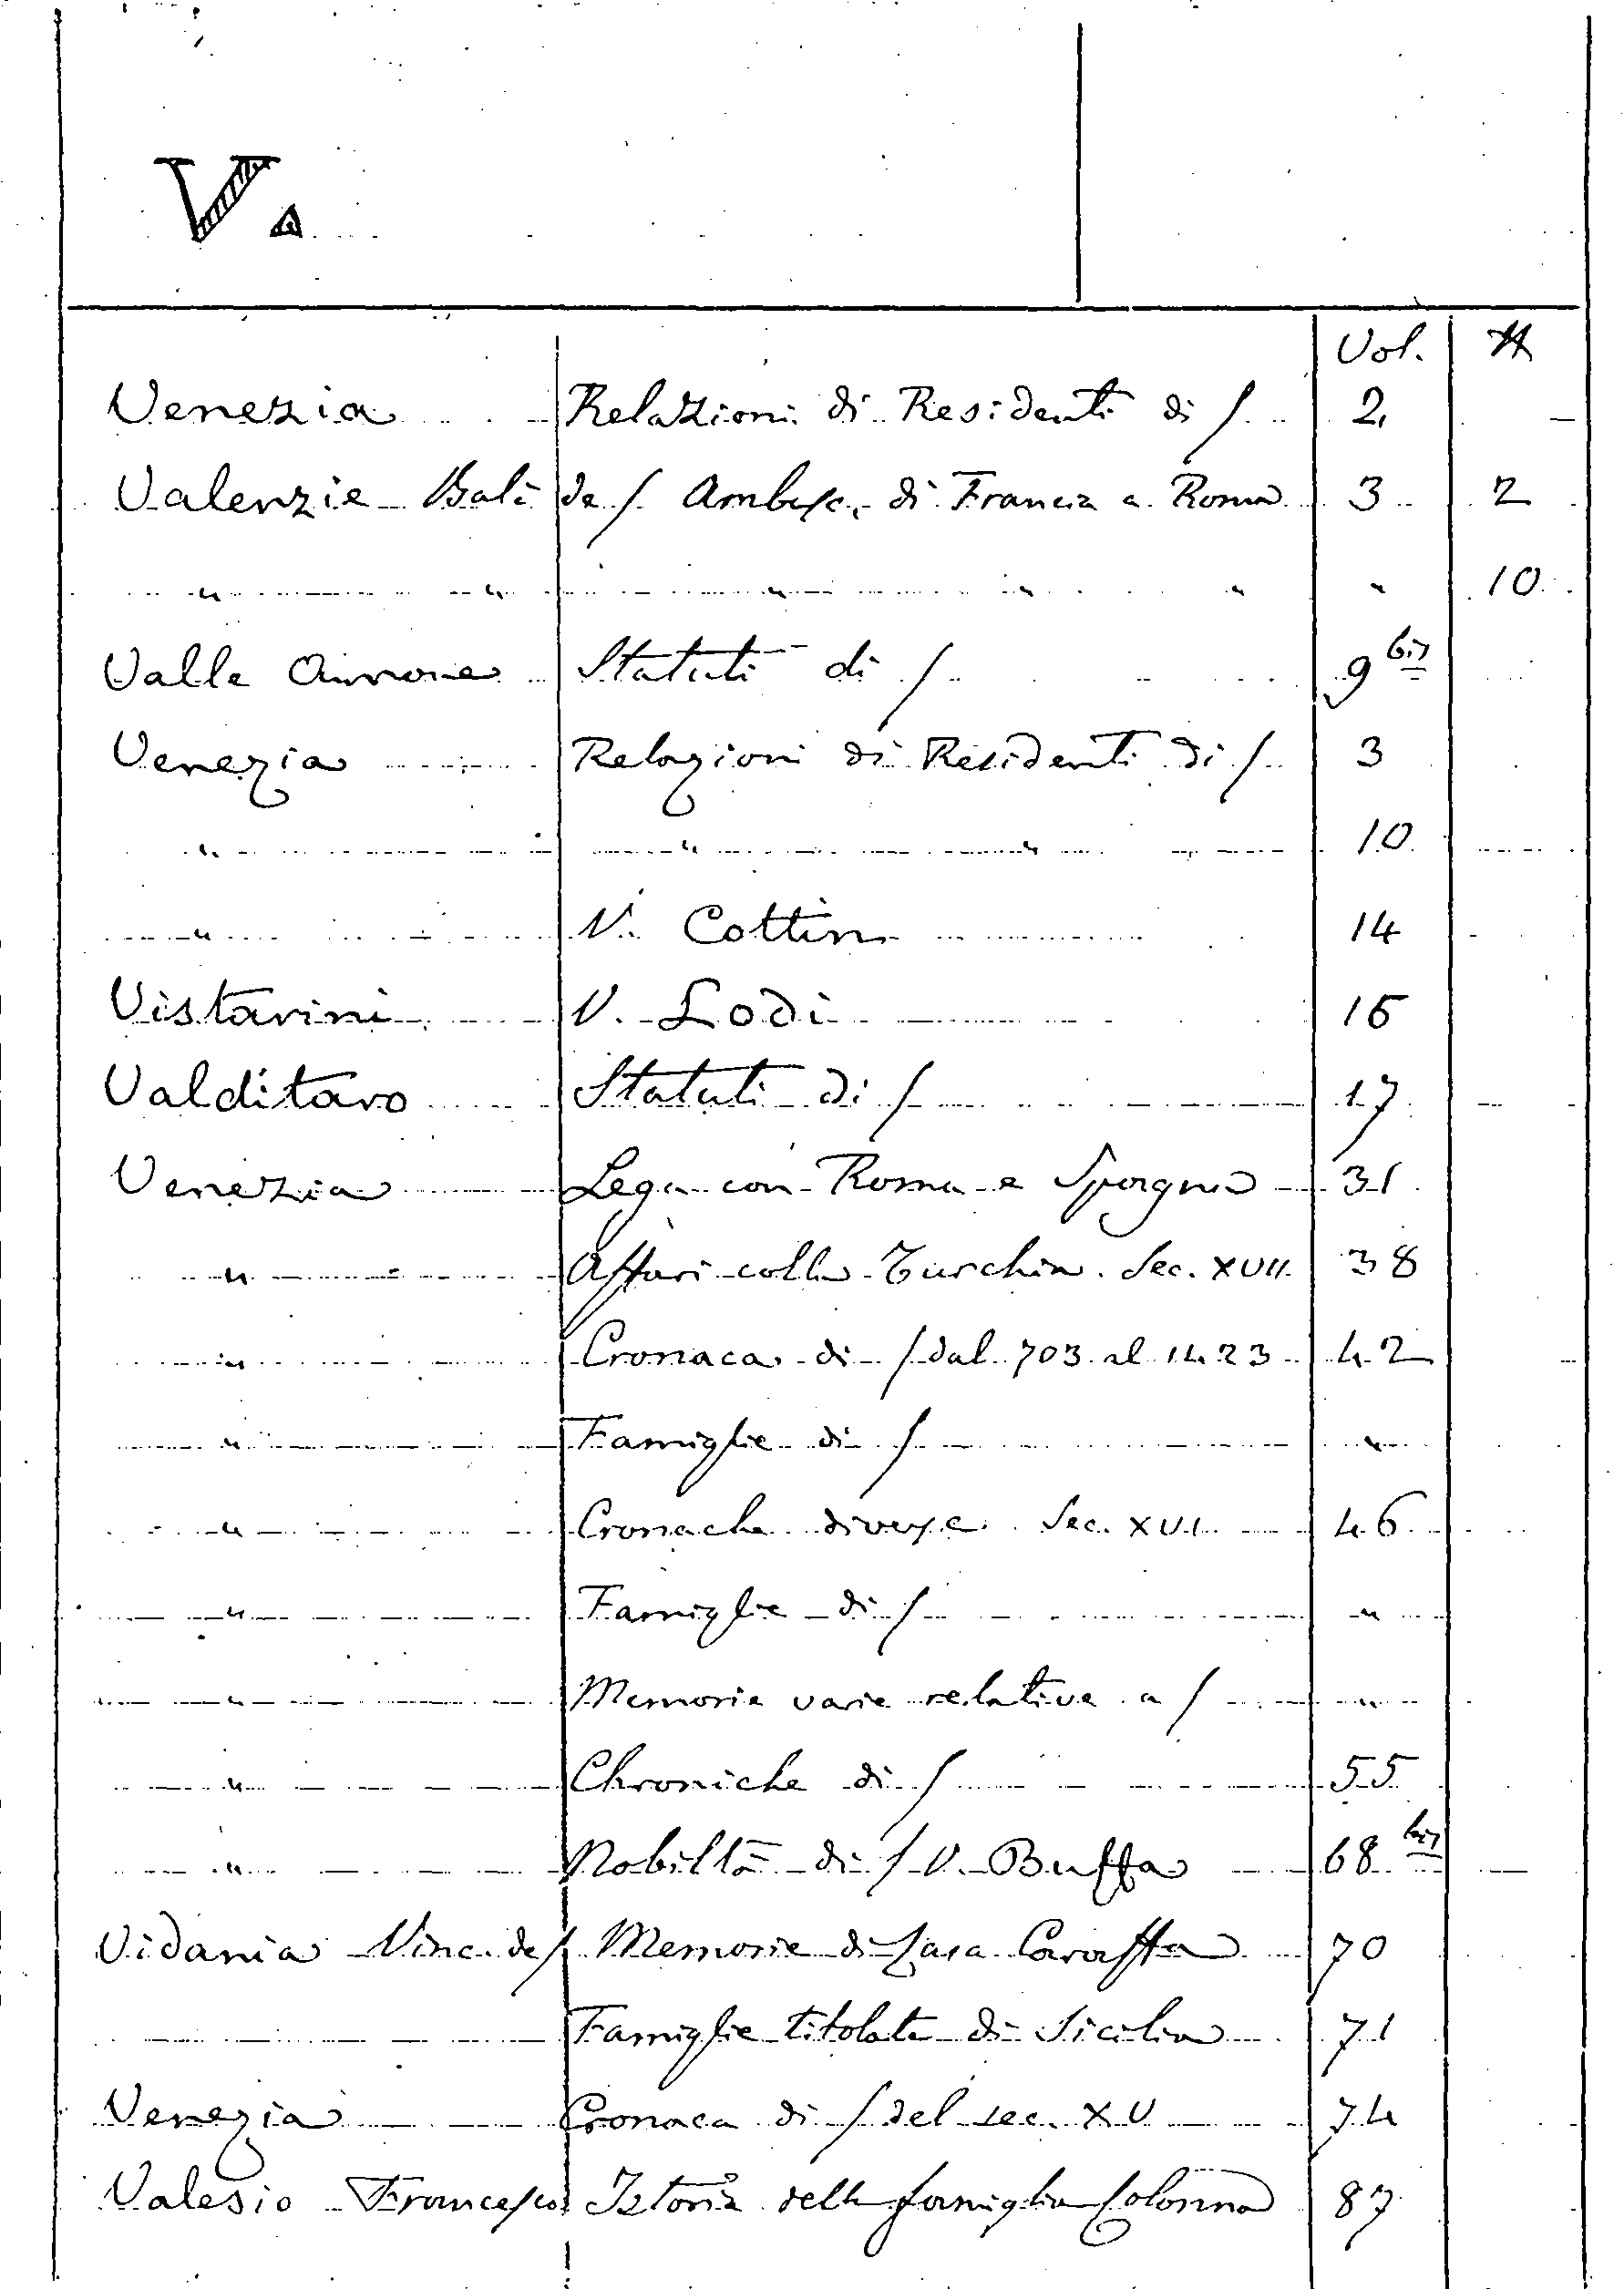 V.
Vol. №
Venezia Relazioni di Residenti di / 2
Valenzie Balì de / Ambasc. di Francia a Roma 3 2
" " " " " " 10
Valle Aimone Statuti di / 9 bis
Venezia Relazioni di Residenti di / 3
" " " 10
" V. Cottin 14
Vistarini V. Lodi 16
Valditaro Statuti di / 17
Venezia Lega con Roma e Spagna 31
" Affari colla Turchia. Sec. XVII. 38
" Cronaca di / dal 703 al 1423 42
" Famiglie di / "
" Cronache diverse Sec. XVI 46
" Famiglie di / "
" Memorie varie relative a / "
" Chroniche di / 55
" Nobiltà di / V. Buffa 68 bis
Vidania Vinc. de / Memorie di Casa Caraffa 70
Famiglie titolate di Sicilia 71
Venezia Cronaca di / del sec. XV 74
Valesio Francesco Istoria della famiglia Colonna 87